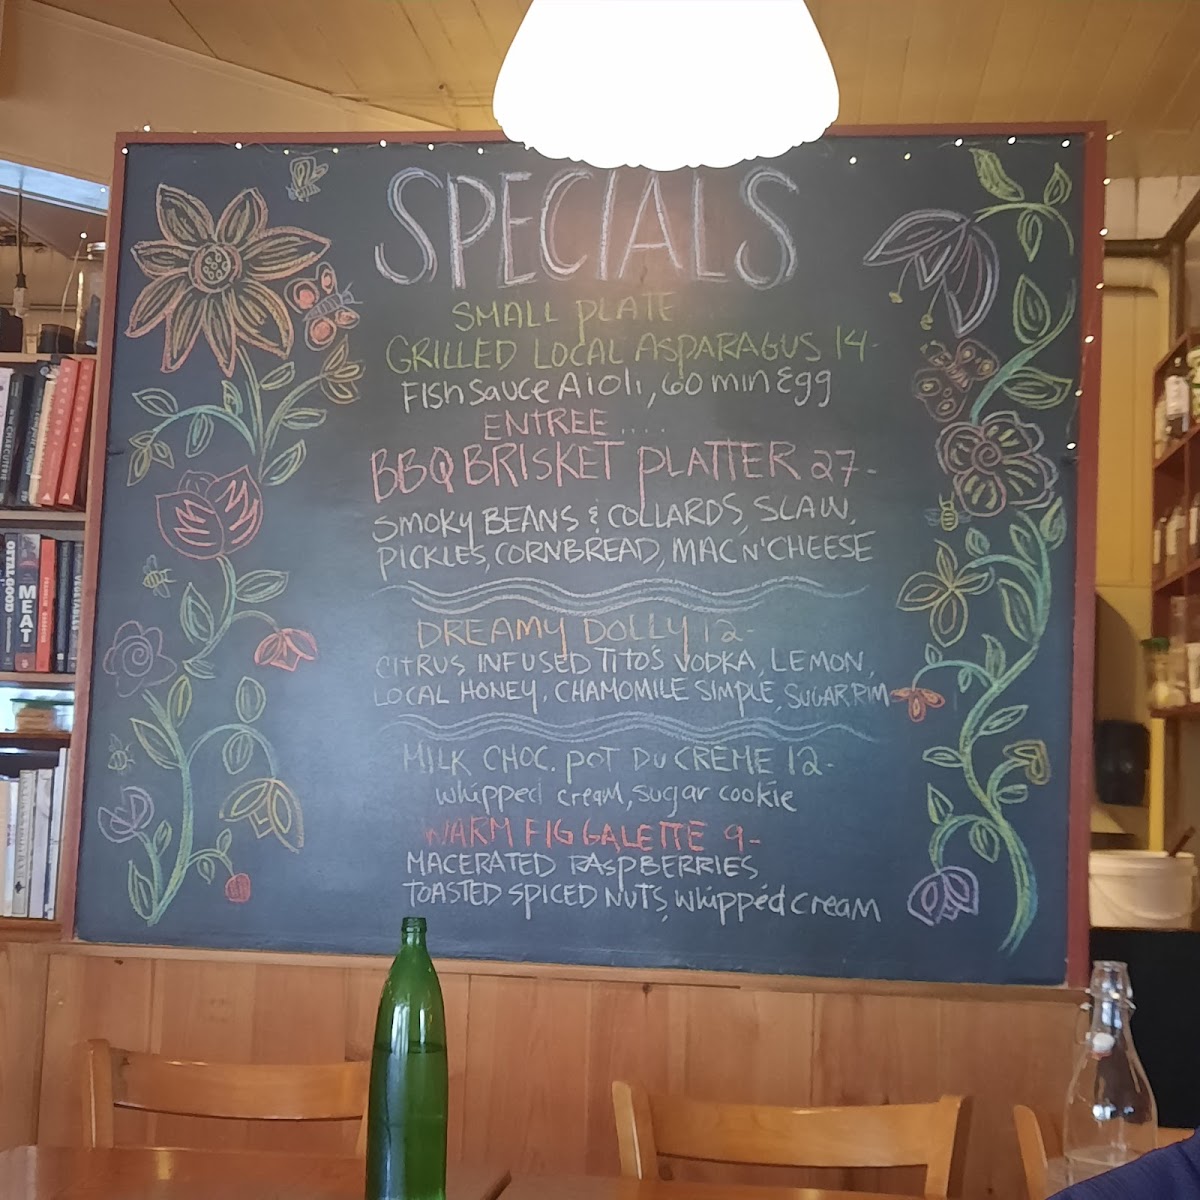 SPECIALS
SMALL PLATE
GRILLED LOCAL ASPARAGUS 14-
Fish Sauce Aioli, 60 min Egg
ENTREE ....
BBQ BRISKET PLATTER 27-
SMOKY BEANS & COLLARDS, SLAW,
PICKLES, CORNBREAD, MAC N' CHEESE
DREAMY DOLLY 12-
CITRUS INFUSED TITO'S VODKA, LEMON,
LOCAL HONEY, CHAMOMILE SIMPLE, SUGAR RIM
MILK CHOC. POT DU CRÈME 12-
whipped cream, sugar cookie
WARM FIG GALETTE 9-
MACERATED RASPBERRIES
TOASTED SPICED NUTS, whipped cream
OFFAL GOOD
MEAT
VEGETABLES